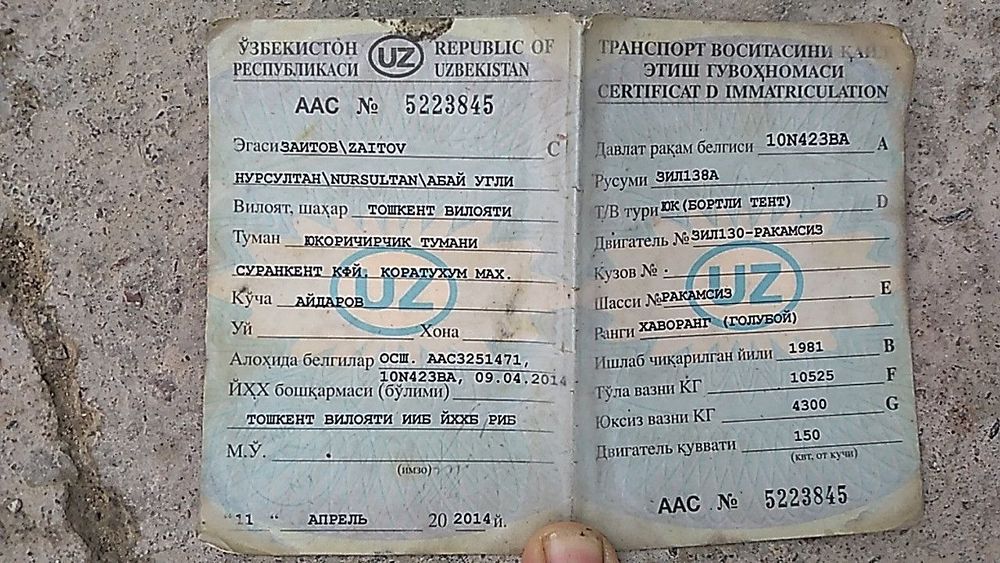 ЎЗБЕКИСТОН РЕСПУБЛИКАСИ
UZ
REPUBLIC OF UZBEKISTAN
ААС № 5223845
Эгаси ЗАИТОВ\ZAITOV C
НУРСУЛТАН\NURSULTAN\АБАЙ УГЛИ
Вилоят, шаҳар ТОШКЕНТ ВИЛОЯТИ
Туман ЮКОРИЧИРЧИК ТУМАНИ
СУРАНКЕНТ КФЙ. КОРАТУХУМ МАХ.
Кўча АЙДАРОВ
Уй Хона
Алоҳида белгилар ОСШ. ААС3251471,
10N423BA, 09.04.2014
ЙҲХ бошқармаси (бўлими)
ТОШКЕНТ ВИЛОЯТИ ИИБ ЙХХБ РИБ
М.Ў.
(имзо)
"11 " АПРЕЛЬ 20 2014 й.
UZ
ТРАНСПОРТ ВОСИТАСИНИ ҚАЙД
ЭТИШ ГУВОҲНОМАСИ
CERTIFICAT D IMMATRICULATION
Давлат рақам белгиси 10N423BA A
Русуми ЗИЛ138А
Т/В тури ЮК(БОРТЛИ ТЕНТ) D
Двигатель № ЗИЛ130-РАКАМСИЗ
Кузов № .
Шасси № РАКАМСИЗ E
Ранги ХАВОРАНГ (ГОЛУБОЙ)
Ишлаб чиқарилган йили 1981 B
Тўла вазни КГ 10525 F
Юксиз вазни КГ 4300 G
Двигатель қуввати 150
(квт. от кучи)
ААС № 5223845
UZ